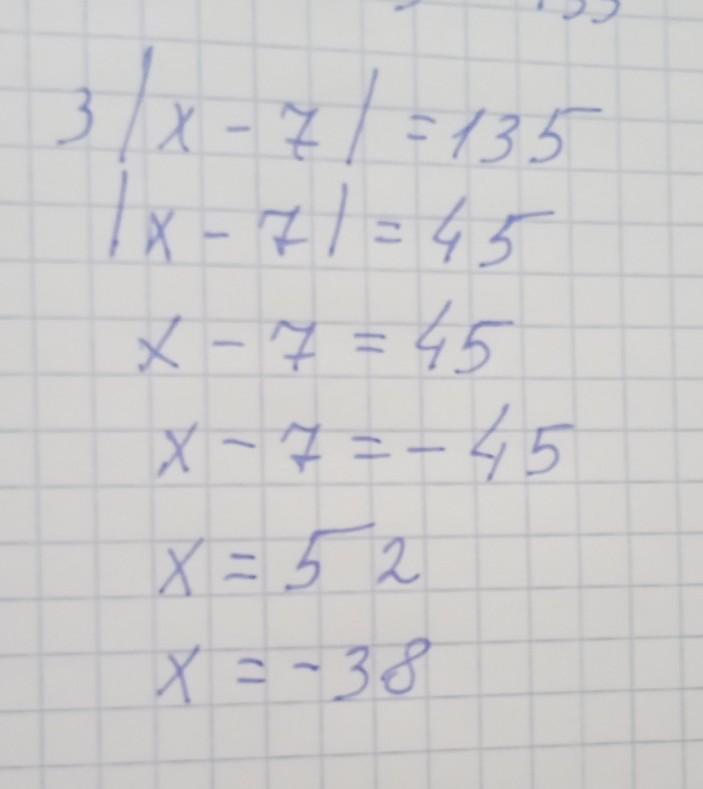 3|x - 7| = 135
|x - 7| = 45
x - 7 = 45
x - 7 = - 45
x = 52
x = - 38